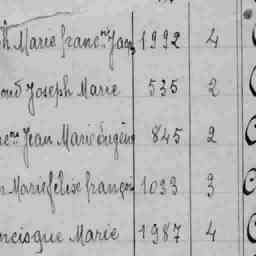 h Marie franc.se Jacq 1992 4
ond Joseph Marie 535 2
re.ne Jean Marie Eugène 845 2
n Marie félise françoi 1033 3
ncisque Marie 1987 4